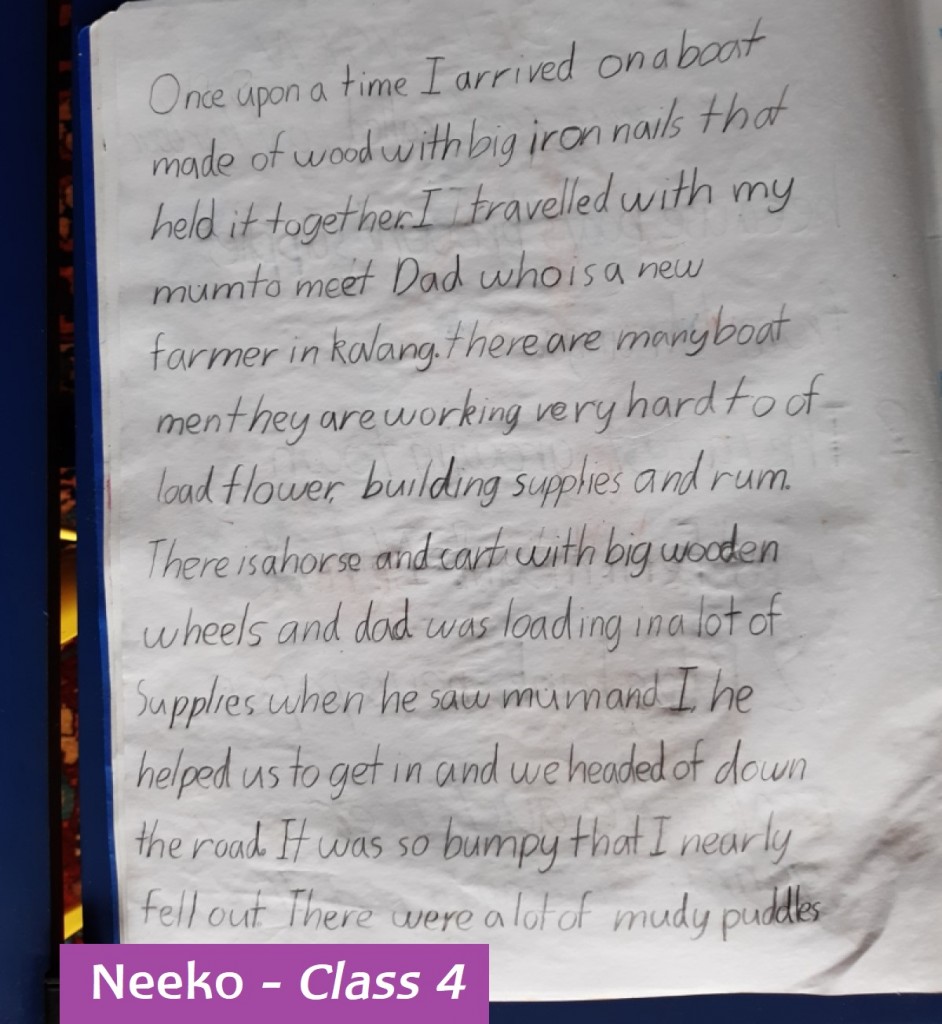 Once upon a time I arrived on a boat
made of wood with big iron nails that
held it together. I travelled with my
mum to meet Dad who is a new
farmer in kalang. there are many boat
men they are working very hard to of
load flower, building supplies and rum.
There is a horse and cart with big wooden
wheels and dad was loading in a lot of
Supplies when he saw mum and I, he
helped us to get in and we headed of down
the road. It was so bumpy that I nearly
fell out. There were a lot of mudy puddles
Neeko - Class 4